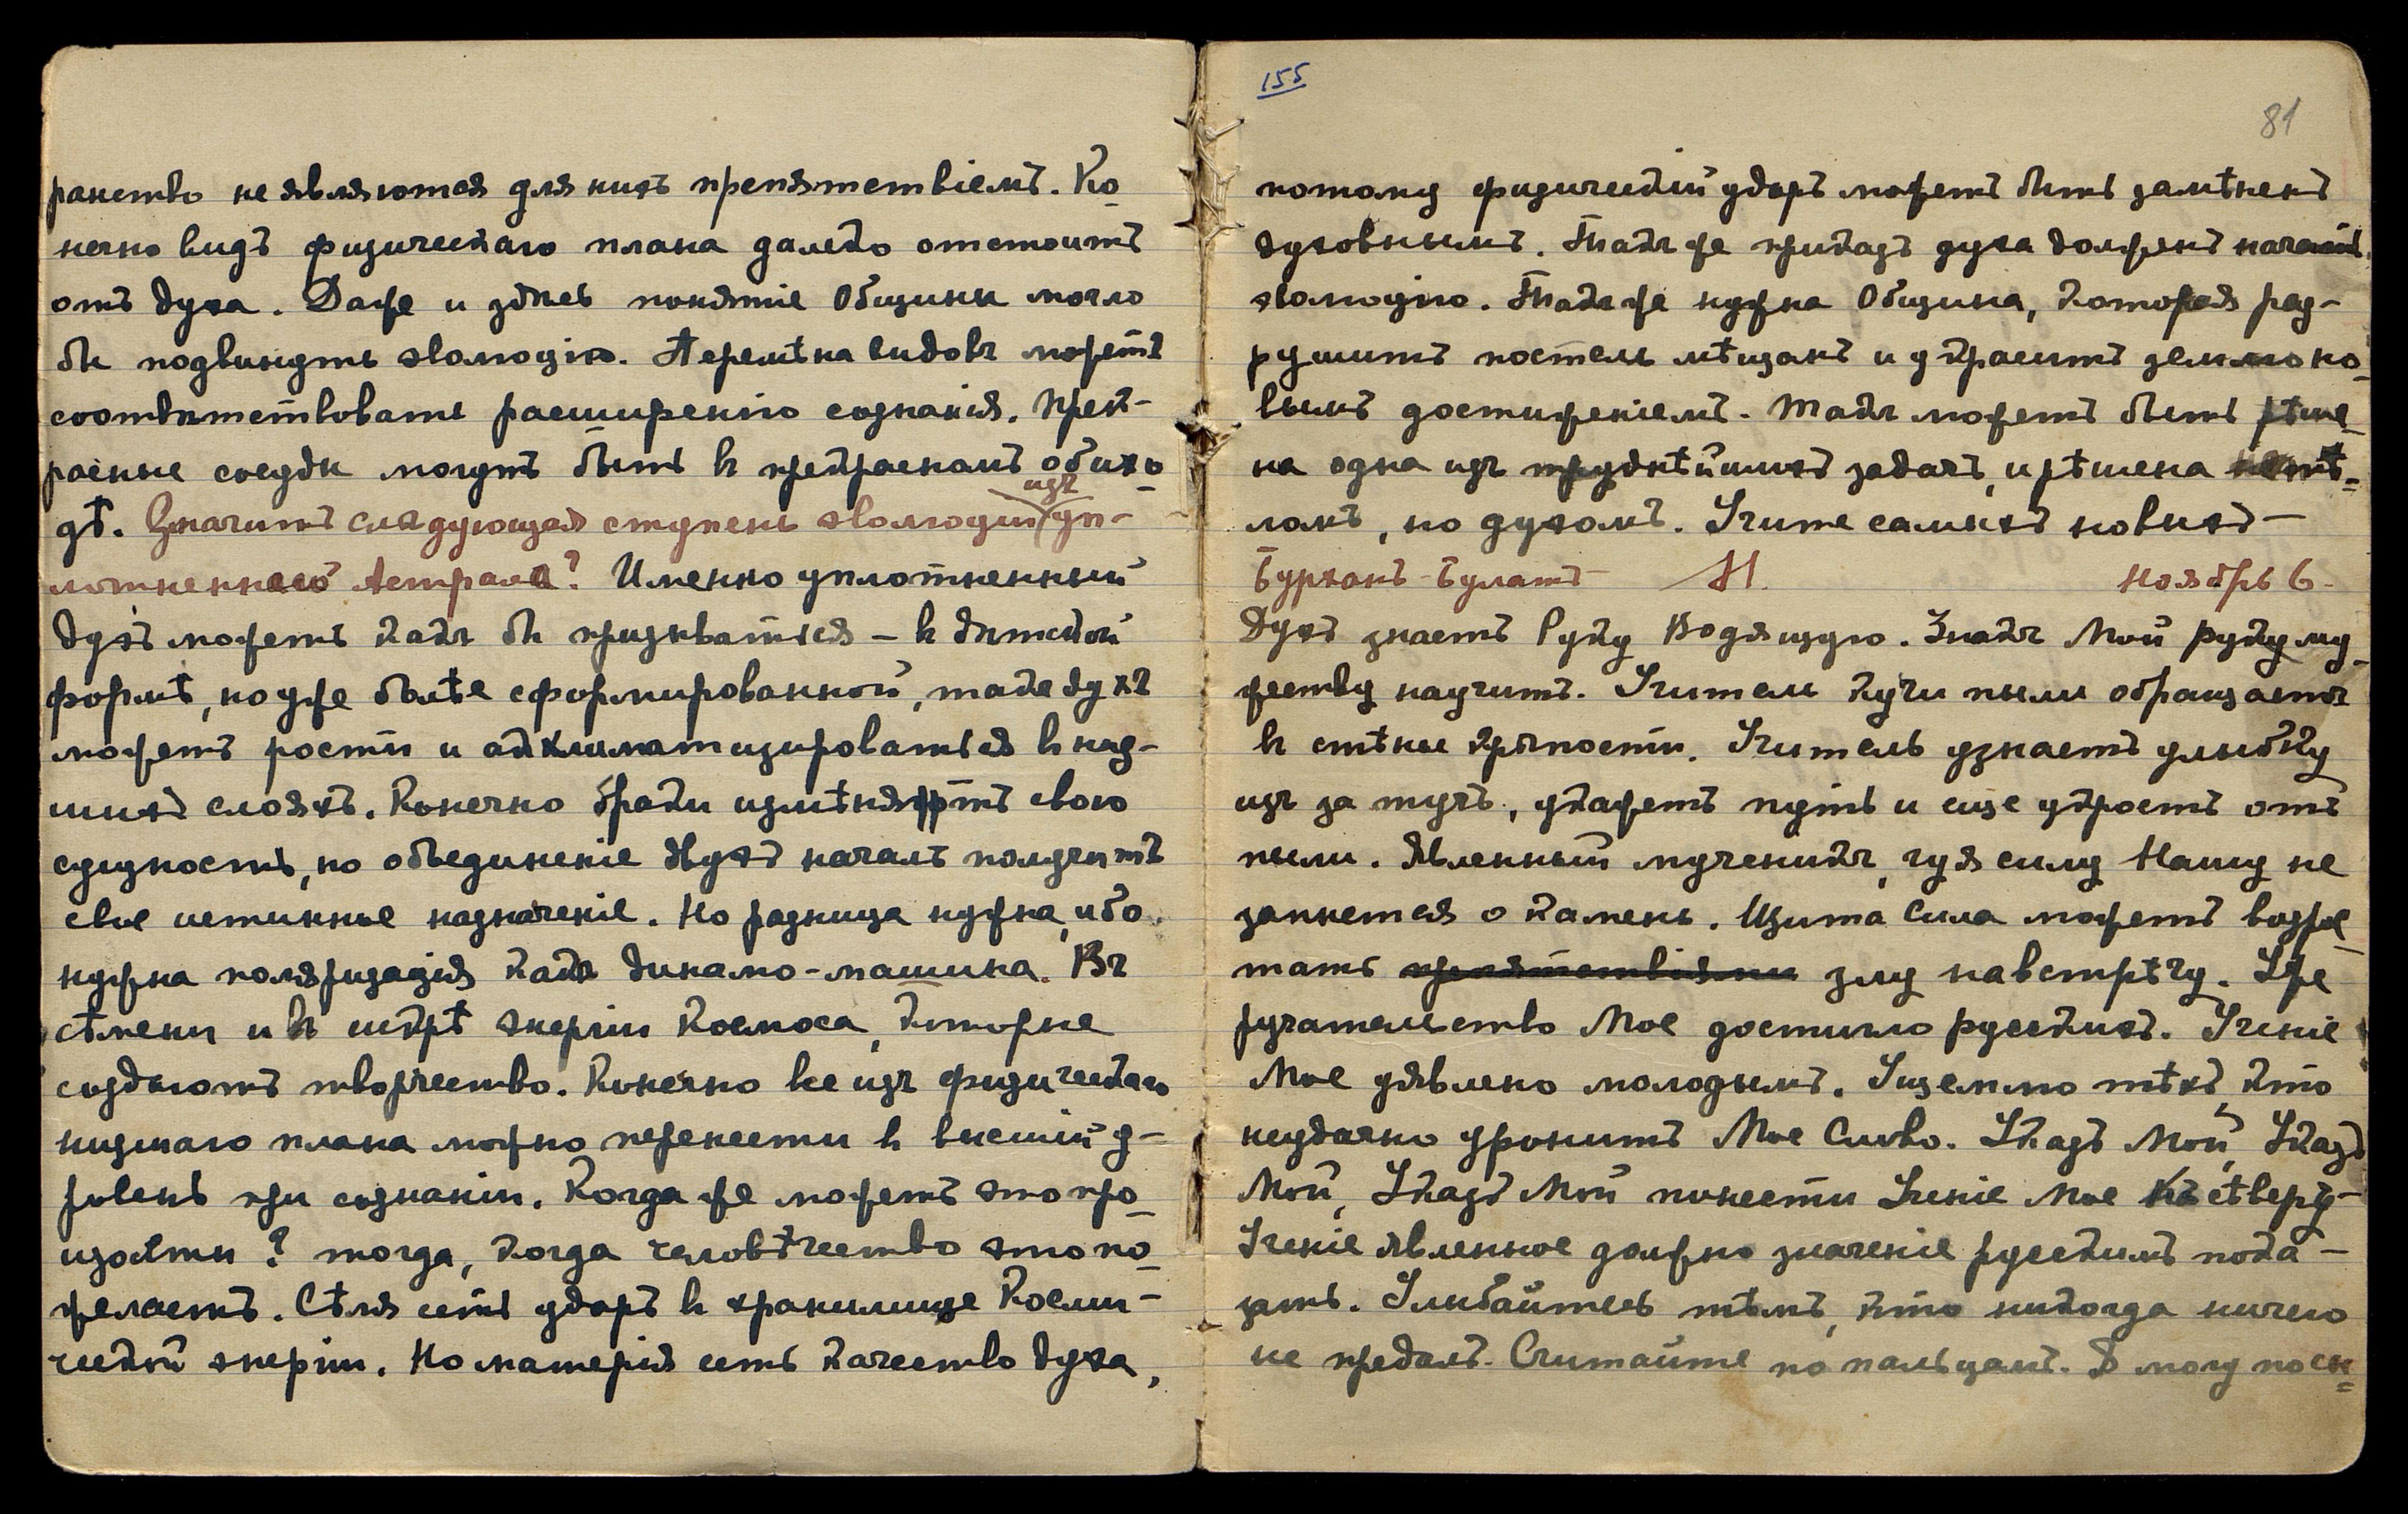 ранство не являются для нихъ препятствіемъ. Ко-
нечно видъ физическаго плана далеко отстоитъ
отъ духа. Даже и здѣсь понятіе Общины могло
бы подвинуть эволюцію. Перемѣна видовъ можетъ
соотвѣтствовать расширенію сознанія. Прек-
расные сосуды могутъ быть въ прекрасномъ обихо-
дѣ. Значитъ следующая ступень эволюціи изъ уп-
лотненнаго Астрала? Именно уплотненный
духъ можетъ какъ бы призываться – въ дѣтской
формѣ, но уже болѣе сформированной, такъ духъ
можетъ рости и акклиматизироваться въ низ-
шихъ слояхъ. Конечно браки измѣняютъ свою
сущность, но объединеніе двухъ началъ получитъ
свое истинное назначеніе. Но разница нужна, ибо
нужна поляризація какъ динамо-машина. Въ
сѣмени и въ искрѣ энергіи Космоса, которые
создаютъ творчество. Конечно все изъ физическаго
низшаго плана можно перенести въ высшій у-
ровень при сознаніи. Когда же можетъ это про-
изойти? тогда, когда человѣчество это по-
желаетъ. Сѣмя есть ударъ въ хранилище Косми-
ческой энергіи. Но матерія есть качество духа,
155
81
потому физическій ударъ можетъ быть замѣненъ
духовнымъ. Также приказъ духа долженъ начать
эволюцію. Также нужна Община, которая раз-
рушитъ постель мѣщанъ и украситъ землю но-
вымъ достиженіемъ. Такъ можетъ быть рѣше-
на одна изъ труднѣйшихъ задачъ, и рѣшена не тѣ-
ломъ, но духомъ. Учите самыхъ новыхъ –
Бурханъ-Булатъ Н. Ноябрь 6.
Духъ знаетъ Руку Водящую. Знакъ Мой руку му-
жеству научитъ. Учитель кучи пыли обращаетъ
въ стѣны крѣпости. Учитель узнаетъ улыбку
изъ за тучъ, укажетъ путь и еще укроетъ отъ
пыли. Явленный мученикъ, чуя силу Нашу не
запнется о камень. Щита Сила можетъ возрас-
тать препятствіями злу навстрѣчу. Уже
ручательство Мое достигло русскихъ. Ученіе
Мое уявлено молодымъ. Ущемлю тѣхъ, кто
неудачно уронитъ Мое Слово. Указъ Мой, Указъ
Мой, Указъ Мой понести Ученіе Мое къ сѣверу –
Ученіе явленное должно значеніе русскимъ пока-
зать. Улыбайтесь тѣмъ, кто никогда ничего
не предалъ. Считайте по пальцамъ. Я могу посы-